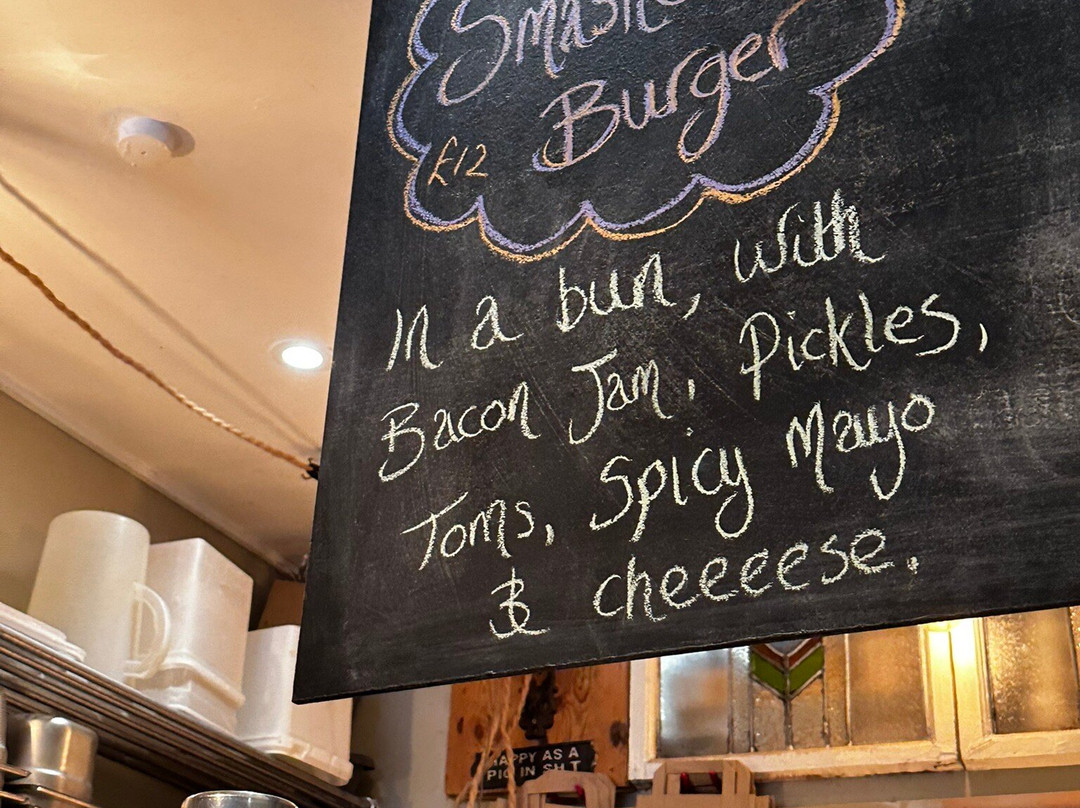 Smash
Burger
£12
in a bun, with
Bacon Jam, Pickles,
Toms, Spicy Mayo
& cheeeese.
HAPPY AS A
PIG IN SH T